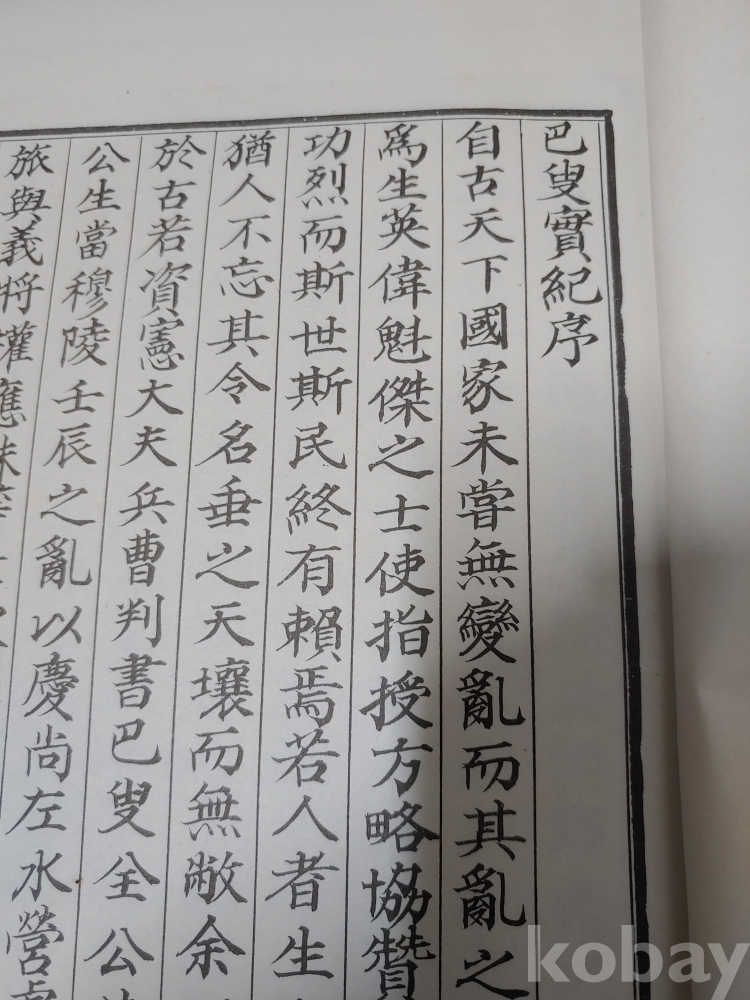 巴叟實紀序
自古天下國家未嘗無變亂而其亂之
爲生英偉魁傑之士使指授方略協贊
功烈而斯世斯民終有賴焉若人者生
猶人不忘其令名垂之天壤而無敝余
於古若資憲大夫兵曹判書巴叟全公
公生當穆陵壬辰之亂以慶尚左水營
旅與義將權應銖
kobay